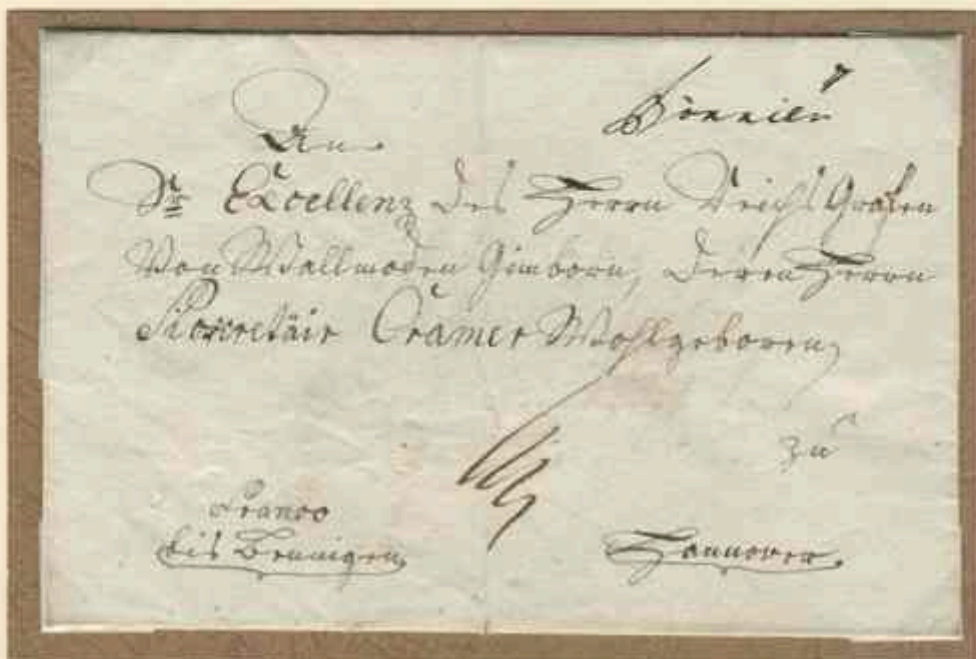 An
Sr Excellenz des Herrn Reichs Grafen
Von Wallmoden Gimborn, deren Herrn
Secretair Cramer Wohlgeboren,
zu
Franco
bis
Hannover.